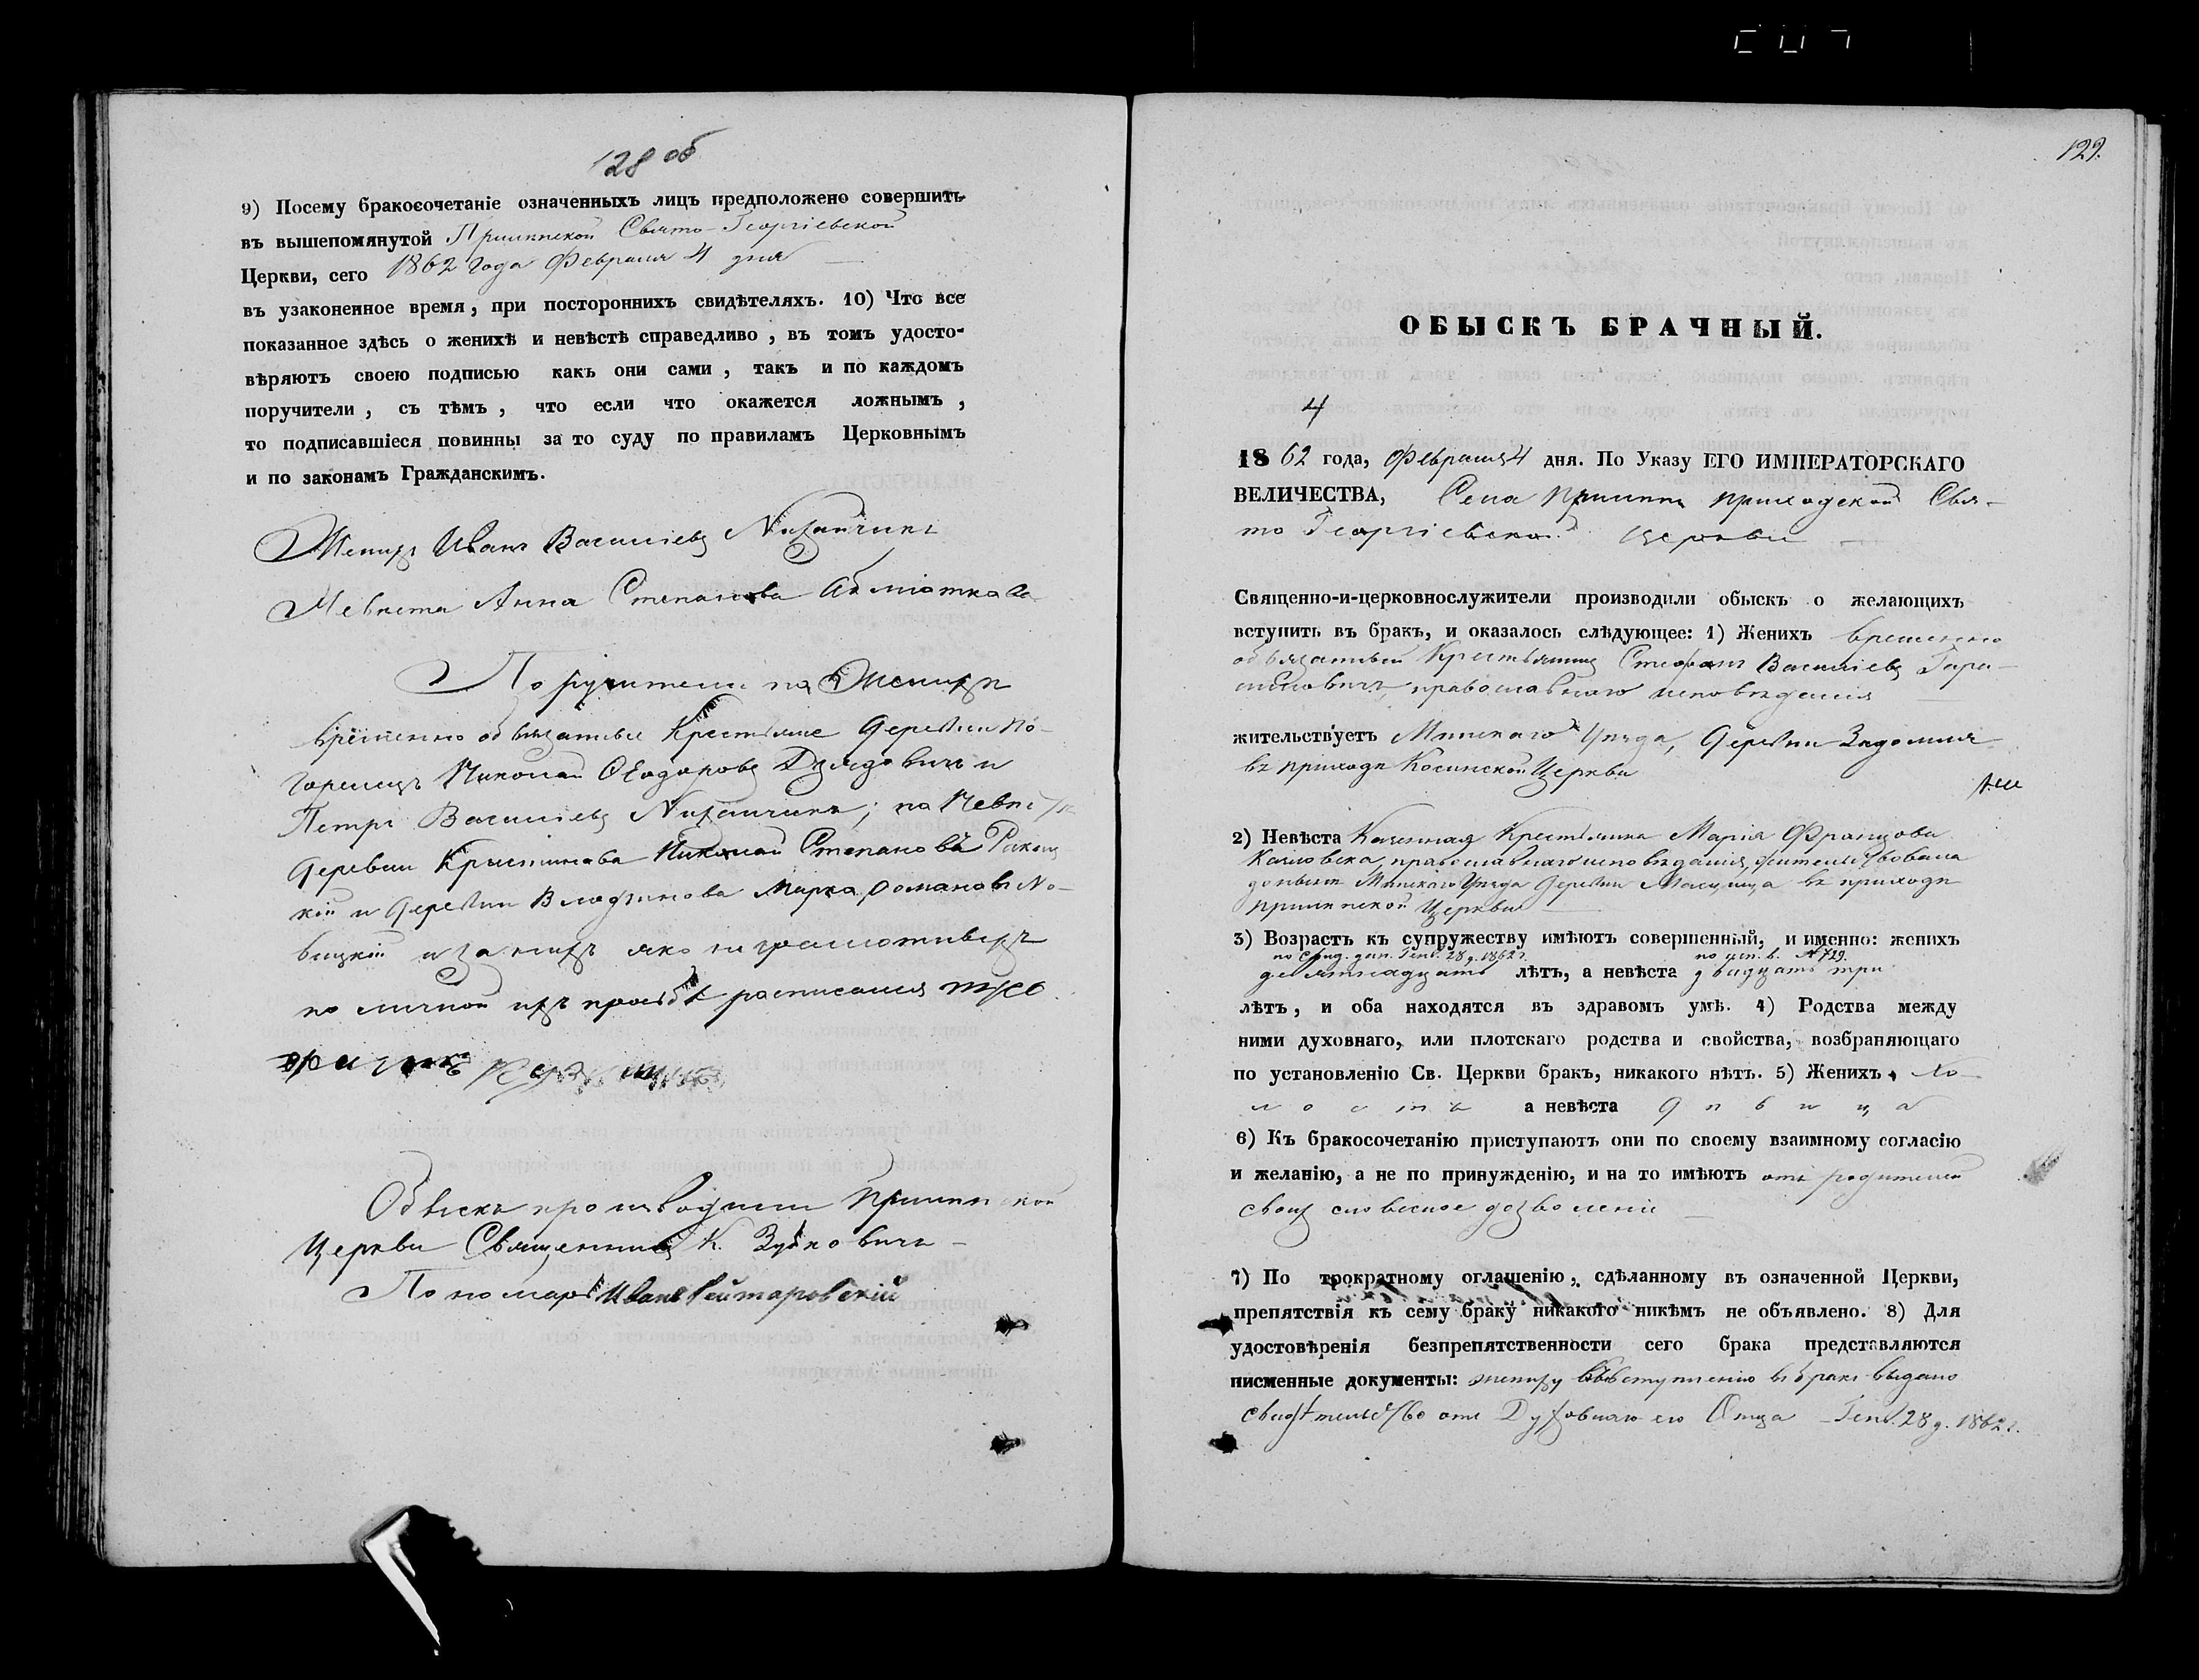 128 об
9) Посему бракосочетаніе означенныхъ лицъ предположено совершить
въ вышепомянутой Прилипской Свято-Георгіевской
Церкви, сего 1862 года Февраля 4 дня
въ узаконенное время, при постороннихъ свидѣтеляхъ. 10) Что все
показанное здѣсь о женихѣ и невѣстѣ справедливо, въ томъ удосто-
вѣряютъ своею подписью какъ они сами, такъ и по каждомъ
поручители, съ тѣмъ, что если что окажется ложнымъ,
то подписавшіеся повинны за то суду по правиламъ Церковнымъ
и по законамъ Гражданскимъ.
Женихъ Иванъ Василіевъ
Невѣста Анна Степанова
Поручители по Женихѣ
временно обвязанные Крестьяне деревни По-
горелецъ Николай Ѳеодоровъ Дзядовичъ и
Петръ Василіевъ по Невѣстѣ
деревни Николай Степановъ
кій и деревни Марко Романовъ Но-
вицкій а за нихъ яко неграмотныхъ
по личной ихъ просьбѣ расписался
Обыскъ производили Прилипской
Церкви Священникъ К.
Пономарь Иванъ
129.
ОБЫСКЪ БРАЧНЫЙ.
4
1862 года, Февраля 4 дня. По Указу ЕГО ИМПЕРАТОРСКАГО
ВЕЛИЧЕСТВА, Села Прилипъ приходской Свя-
то Георгіевской Церкви
Священно-и-церковнослужители производили обыскъ о желающихъ
вступить въ бракъ, и оказалось слѣдующее: 1) Женихъ временно
обвязанный Крестьянинъ Стефанъ Василіевъ Гара-
симовичъ, православнаго исповѣданія
жительствуетъ Минскаго Уѣзда, деревни
въ приходѣ Косинской Церкви
2) Невѣста Казенная Крестьянка Марія Францова
православнаго исповѣданія, жительствовала
донынѣ Минскаго Уѣзда деревни въ приходѣ
Прилипской Церкви
3) Возрастъ къ супружеству имѣютъ совершенный, и именно: женихъ
по свид. дан. Генв. 28 д. 1862 г. по исп. в. № 729.
девятнадцать лѣтъ, а невѣста двадцать три
лѣтъ, и оба находятся въ здравомъ умѣ. 4) Родства между
ними духовнаго, или плотскаго родства и свойства, возбраняющаго
по установленію Св. Церкви бракъ, никакого нѣтъ. 5) Женихъ, хо-
лостъ а невѣста дѣвица
6) Къ бракосочетанію приступаютъ они по своему взаимному согласію
и желанію, а не по принужденію, и на то имѣютъ отъ родителей
своихъ словесное дозволеніе
7) По трократному оглашенію, сдѣланному въ означенной Церкви,
препятствія къ сему браку никакого никѣмъ не объявлено. 8) Для
удостовѣренія безпрепятственности сего брака представляются
писменные документы: жениху вступленію въ бракъ выдано
свидѣтельство отъ Духовнаго его Отца Генв. 28 д. 1862 г.